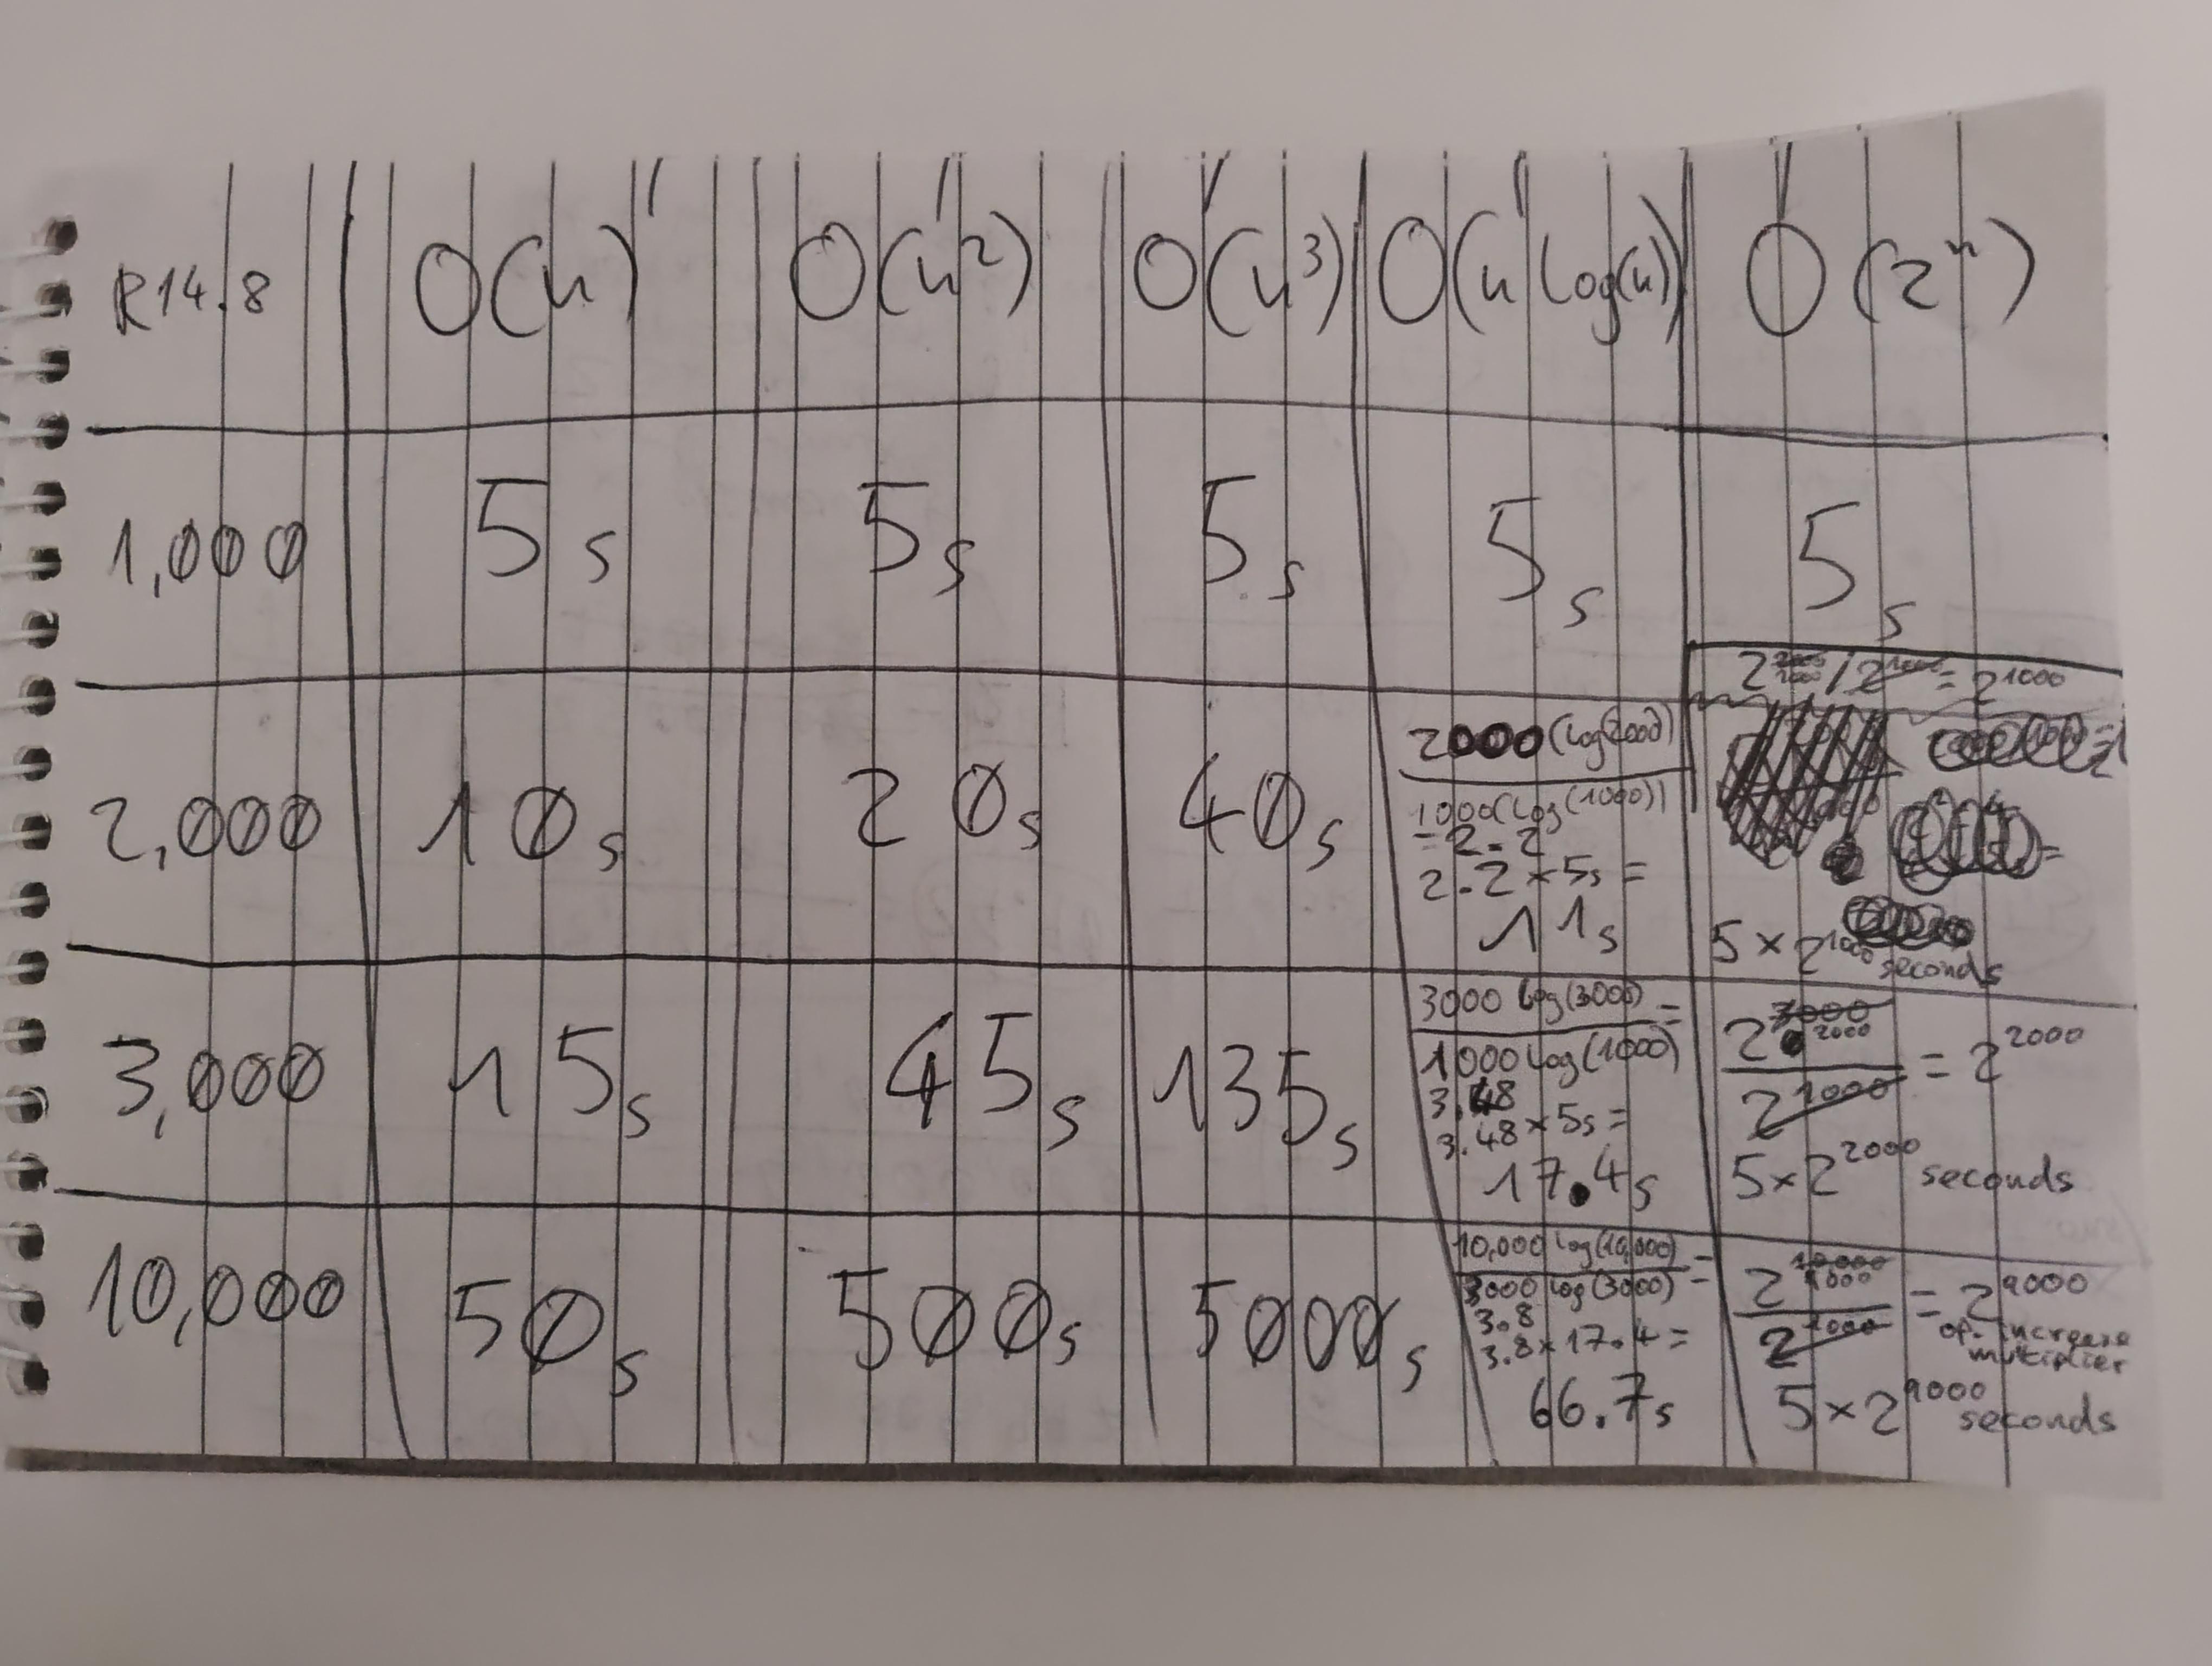 R14.8 O(n) O(n²) O(n³) O(n log(n)) O(2ⁿ)
1,000 5s 5s 5s 5s 5s
2,000 10s 20s 40s
2000(log(2000))
1000(log(1000))
= 2.2
2.2 × 5s =
11s
/ 2¹⁰⁰⁰ = 2¹⁰⁰⁰
5 × 2¹⁰⁰⁰ seconds
3,000 15s 45s 135s
3000 log(3000) =
1000 log(1000)
3.48
3.48 × 5s =
17.4s
2³⁰⁰⁰ ²⁰⁰⁰
2¹⁰⁰⁰ = 2²⁰⁰⁰
5×2²⁰⁰⁰ seconds
10,000 50s 500s 5000s
10,000 log(10,000) =
3000 log(3000) =
3.8
3.8 × 17.4 =
66.7s
2¹⁰⁰⁰⁰ ⁹⁰⁰⁰
2¹⁰⁰⁰ = 2⁹⁰⁰⁰
op. increase
multiplier
5 × 2⁹⁰⁰⁰
seconds